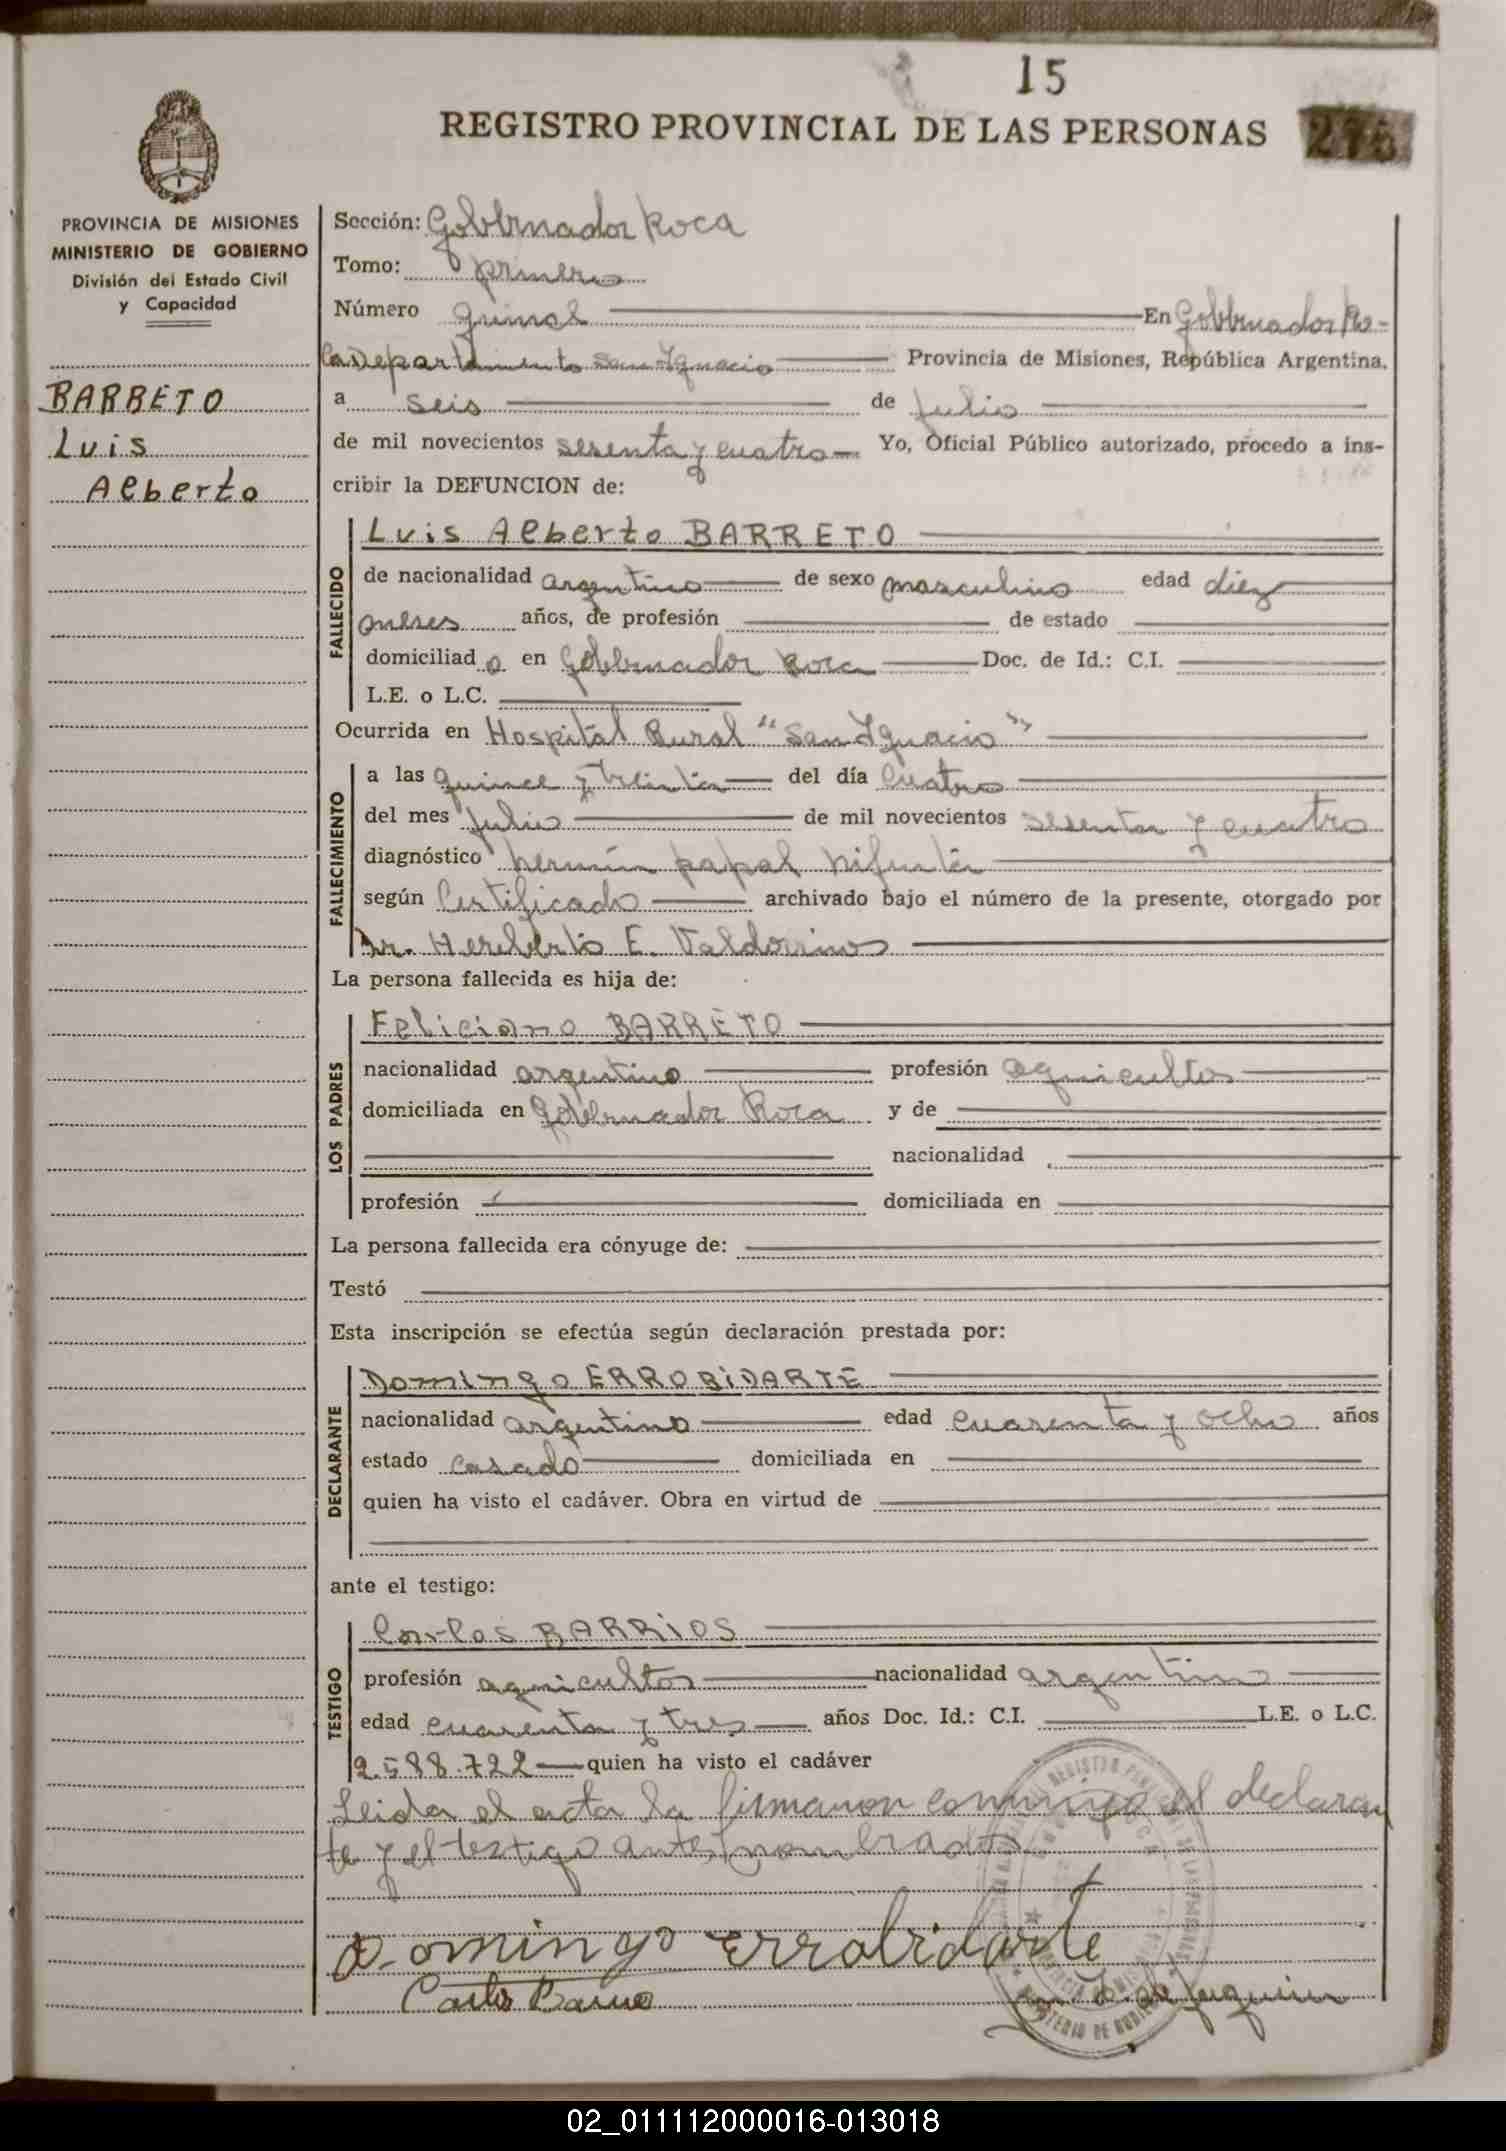 15
REGISTRO PROVINCIAL DE LAS PERSONAS
276
PROVINCIA DE MISIONES
MINISTERIO DE GOBIERNO
División del Estado Civil
y Capacidad
BARRETO
Luis
Alberto
Sección: Gobernador Roca
Tomo: primero
Número quince En Gobernador Ro-
ca Departamento San Ignacio Provincia de Misiones, República Argentina,
a seis de Julio
de mil novecientos sesenta y cuatro Yo, Oficial Público autorizado, procedo a ins-
cribir la DEFUNCION de:
FALLECIDO
Luis Alberto BARRETO
de nacionalidad argentino de sexo masculino edad diez
meses años, de profesión de estado
domiciliado en Gobernador Roca Doc. de Id.: C.I.
L.E. o L.C.
Ocurrida en Hospital Rural "San Ignacio"
FALLECIMIENTO
a las quince y treinta del día cuatro
del mes Julio de mil novecientos sesenta y cuatro
diagnóstico
según Certificado archivado bajo el número de la presente, otorgado por
Dr. Herclerto E. Valdorinos
La persona fallecida es hija de:
LOS PADRES
Feliciano BARRETO
nacionalidad argentino profesión agricultor
domiciliada en Gobernador Roca y de
nacionalidad
profesión domiciliada en
La persona fallecida era cónyuge de:
Testó
Esta inscripción se efectúa según declaración prestada por:
DECLARANTE
Domingo ERROBIDARTE
nacionalidad argentino edad cuarenta y ocho años
estado casado domiciliada en
quien ha visto el cadáver. Obra en virtud de
ante el testigo:
TESTIGO
Carlos BARRIOS
profesión agricultor nacionalidad argentino
edad cuarenta y tres años Doc. Id.: C.I. L.E. o L.C.
2.588.722 quien ha visto el cadáver
Leida el acta la firmaron conmigo el declaran
te y el testigo antes nombrados
Domingo Errobidarte
Carlos Barrios
02_011112000016-013018